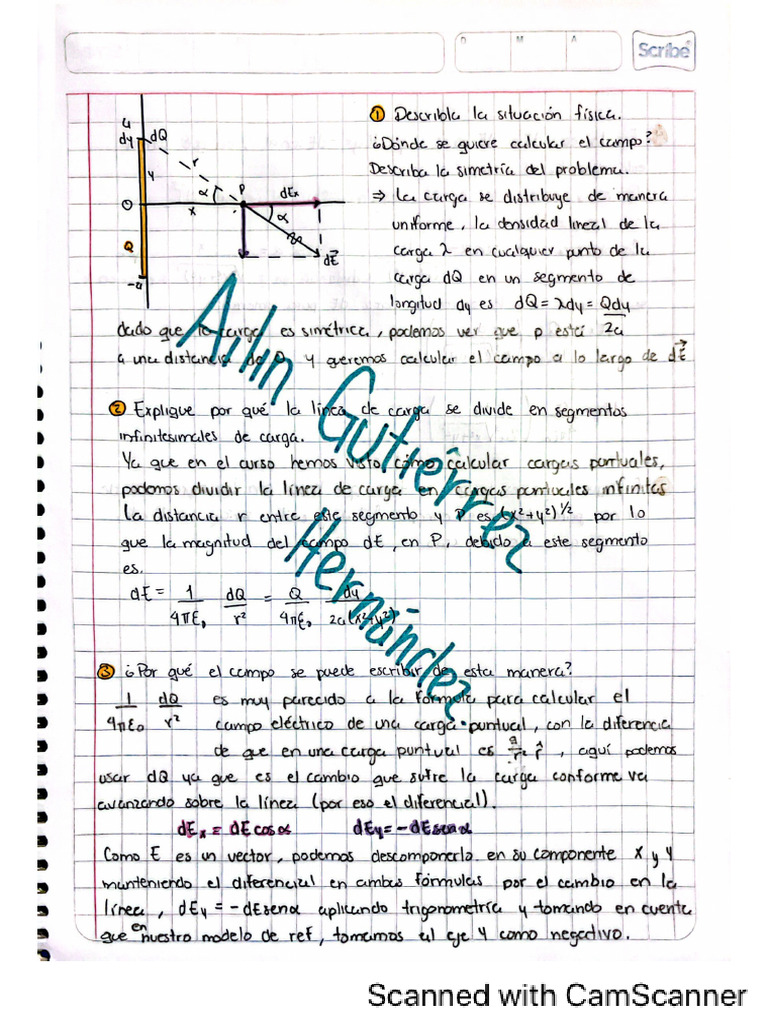 D M A
Scribe
① Describla la situación física.
¿Dónde se quiere calcular el campo?
Describa la simetría del problema.
⇒ La carga se distribuye de manera
uniforme, la densidad lineal de la
carga λ en cualquier punto de la
carga dQ en un segmento de
longitud dy es dQ = λdy = Qdy/2a
a
dy dQ
r
y
α
P
dEx
O
x
α
Q
dE
-a
dado que la carga es simétrica, podemos ver que p está
a una distancia de O y queremos calcular el campo a lo largo de dE
② Explique por qué la línea de carga se divide en segmentos
infinitesimales de carga.
Ya que en el curso hemos visto cómo calcular cargas puntuales,
podemos dividir la línea de carga en cargas puntuales infinitas
La distancia r entre este segmento y P es (x²+y²)^1/2 por lo
que la magnitud del campo dE, en P, debido a este segmento
es.
dE = 1/4πε₀ dQ/r² = Q/4πε₀ dy/2a(x²+y²)
③ ¿Por qué el campo se puede escribir de esta manera?
1/4πε₀ dQ/r² es muy parecido a la fórmula para calcular el
campo eléctrico de una carga puntual, con la diferencia
de que en una carga puntual es q/r² r̂, aquí podemos
usar dQ ya que es el cambio que sufre la carga conforme va
avanzando sobre la línea (por eso el diferencial).
dEx = dE cosα dEy = -dE senα
Como E es un vector, podemos descomponerlo en su componente x y y
manteniendo el diferencial en ambas fórmulas por el cambio en la
línea, dEy = -dE senα aplicando trigonometría y tomando en cuenta
que en nuestro modelo de ref, tomamos al eje y como negativo.
Ailin Gutiérrez Hernández
Scanned with CamScanner